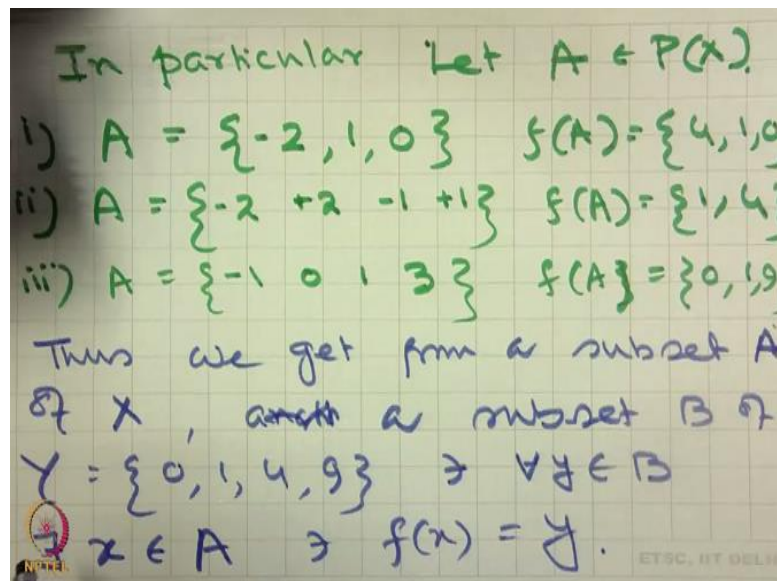 In particular Let A ∈ P(X).
i) A = {-2, 1, 0} f(A) = {4, 1, 0
ii) A = {-2 +2 -1 +1} f(A) = {1, 4}
iii) A = {-1 0 1 3} f(A} = {0, 1, 9
Thus we get from a subset A
of X, a subset B of
Y = {0, 1, 4, 9} ∋ ∀ y ∈ B
∃ x ∈ A ∋ f(x) = y.
NPTEL
ETSC, IIT DELH